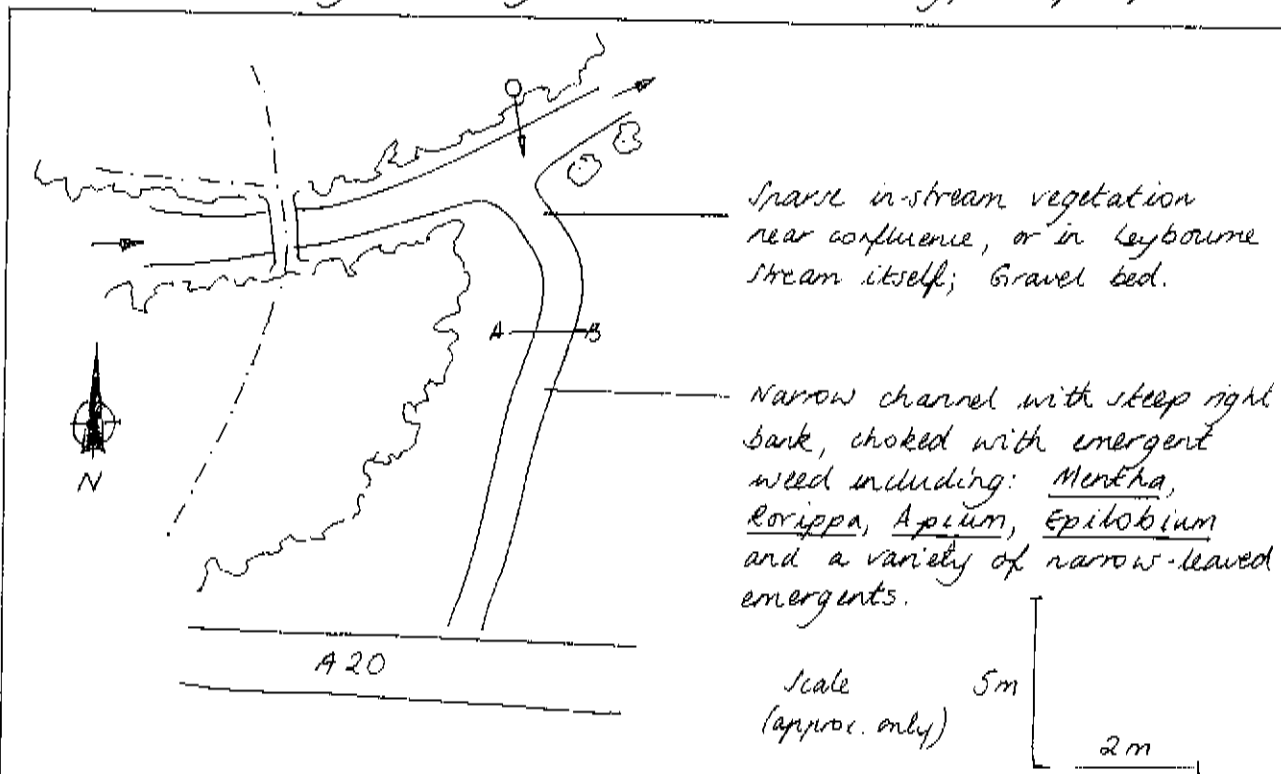 Sparse in-stream vegetation
near confluence, or in Leybourne
Stream itself; Gravel bed.
A
B
N
Narrow channel with steep right
bank, choked with emergent
weed including: Mentha,
Rorippa, Apium, Epilobium
and a variety of narrow-leaved
emergents.
A20
Scale
(approx. only)
5m
2m